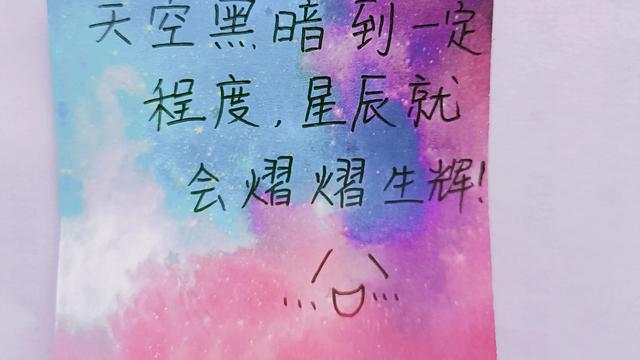 天空黑暗到一定
程度,星辰就
会熠熠生辉!